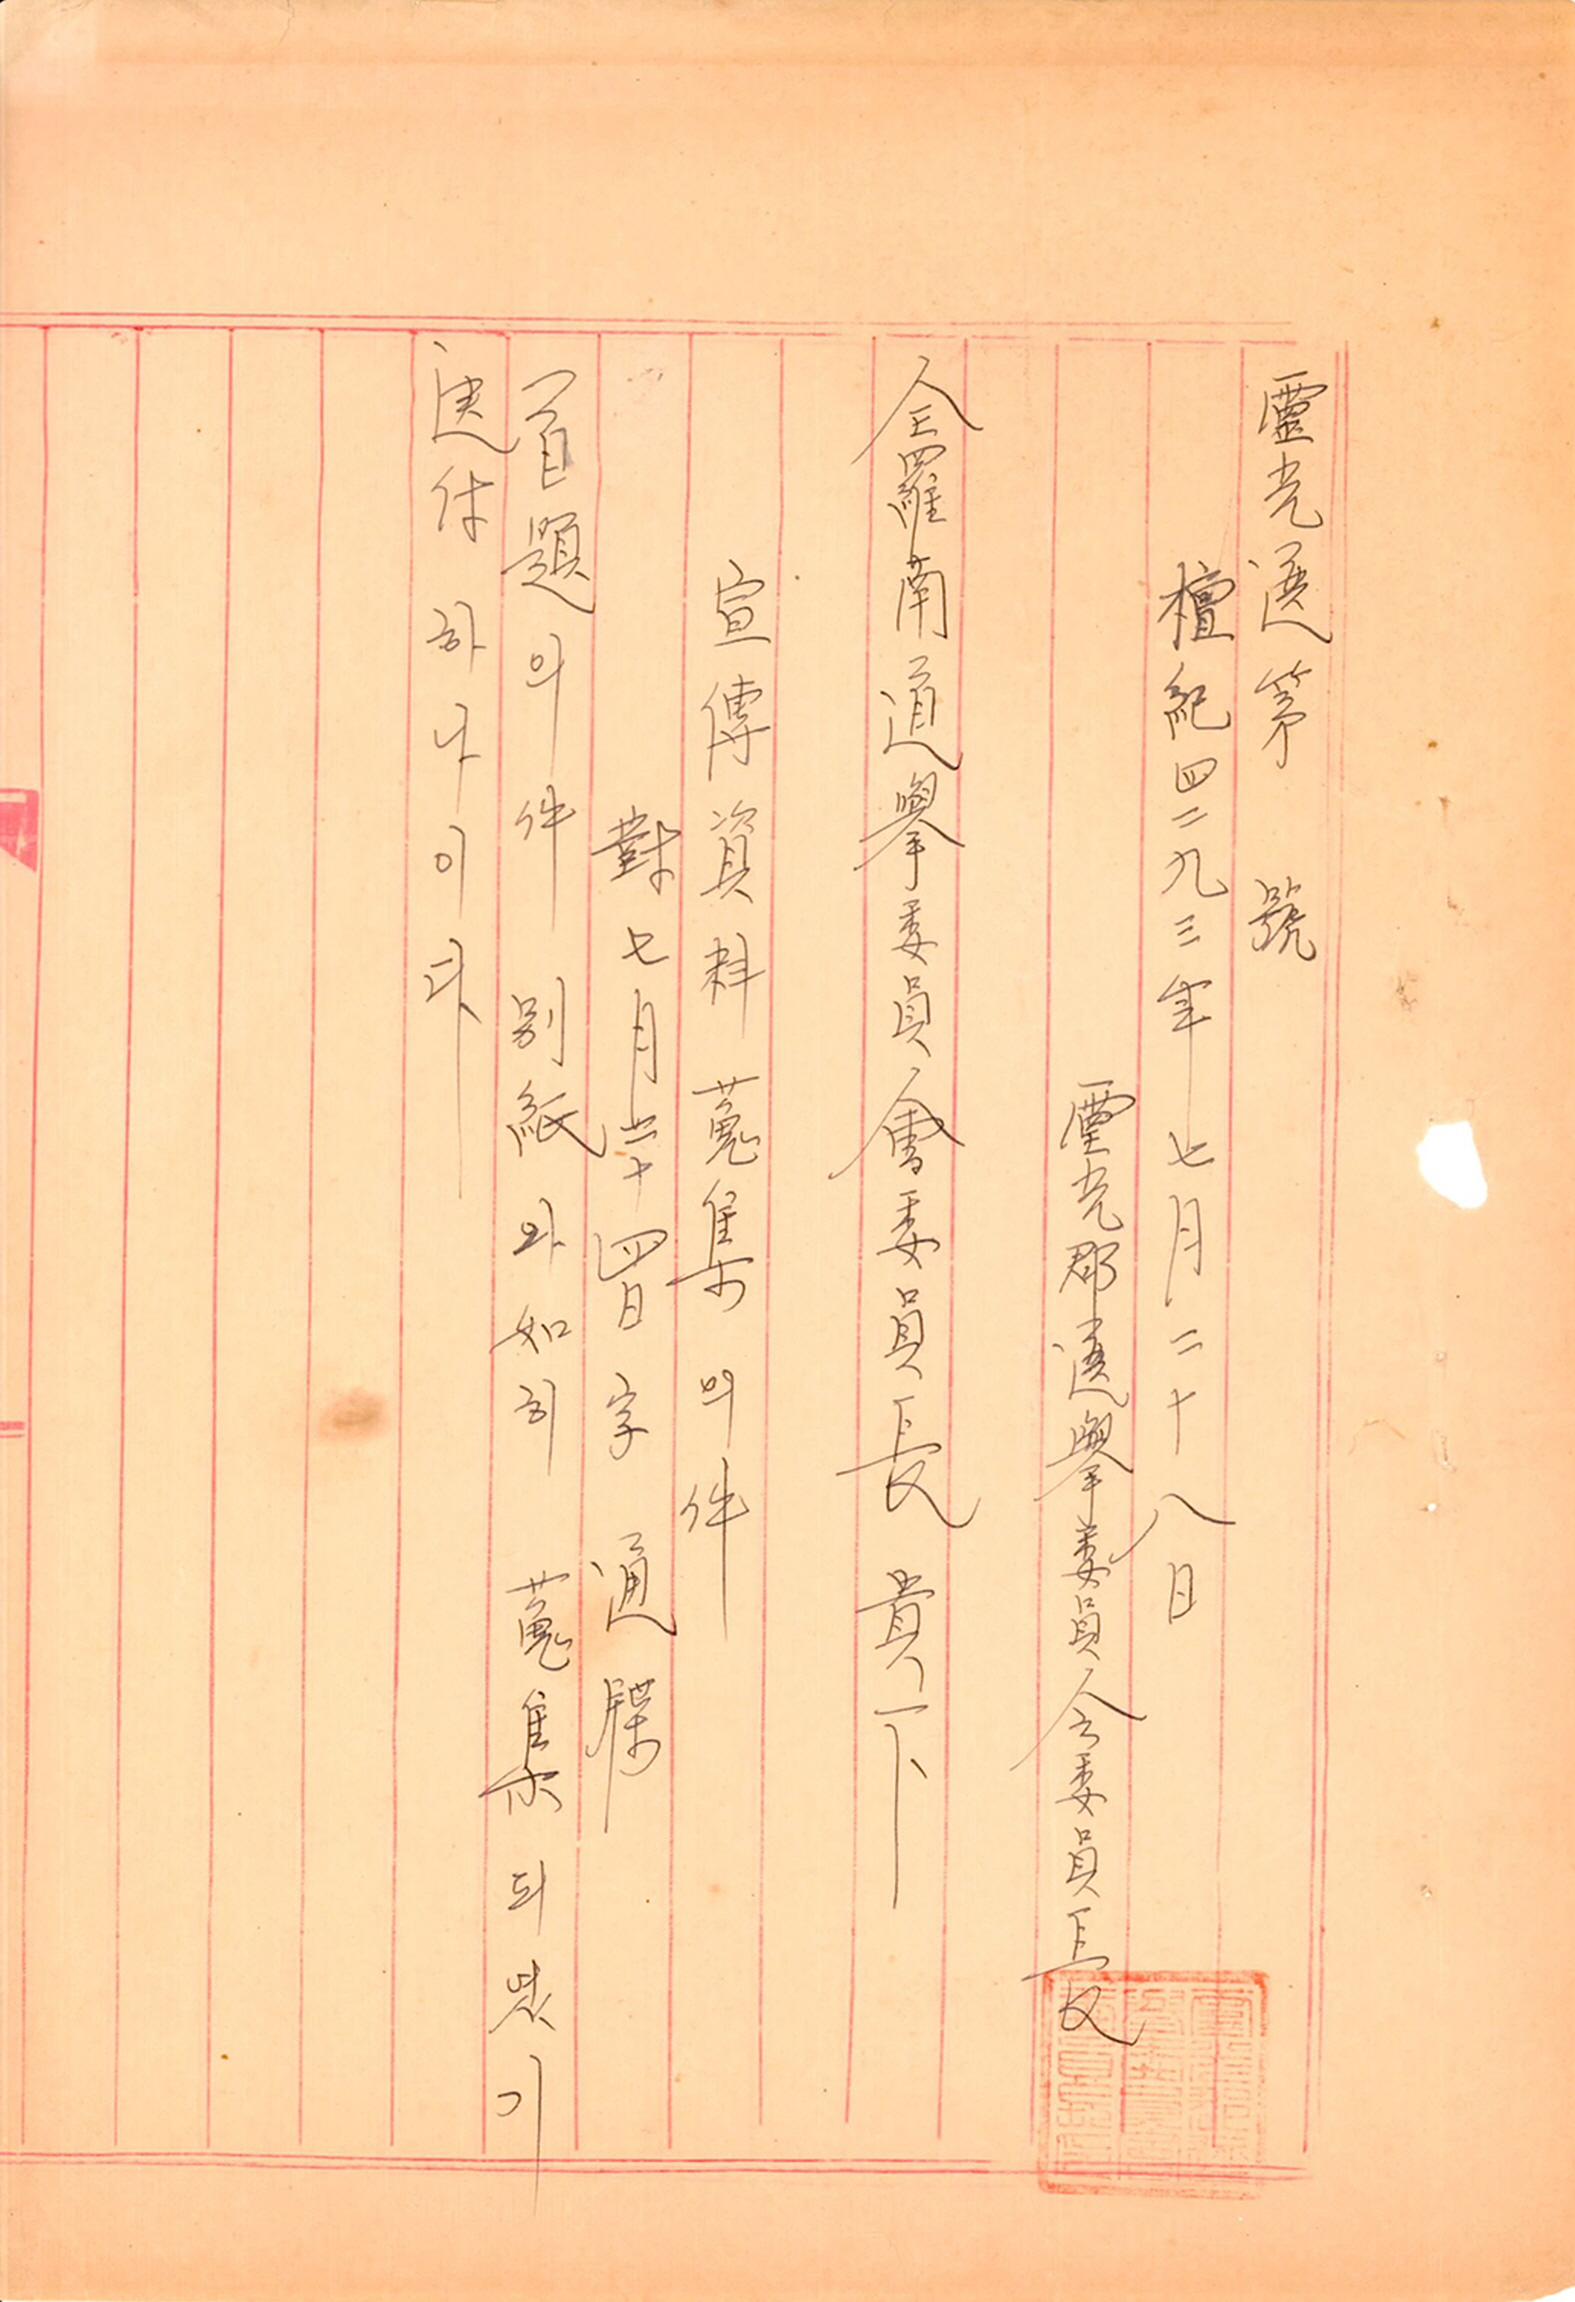 靈光選第 號
檀紀四二九三年 七月二十八日
靈光郡選擧委員会委員長
全羅南道擧委員會委員長 貴下
宣傳資料 蒐集의 件
對七月二十四日字 通牒
首題의 件 別紙와 如히 蒐集되였기
送付하나이다